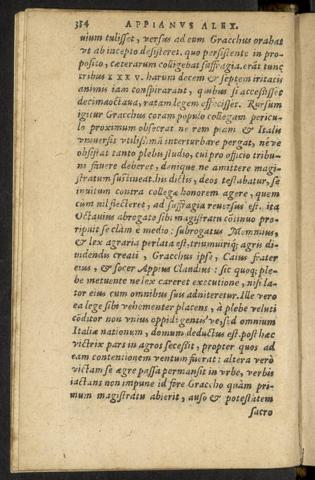 334 APPIANVS ALEX.
uium tulisset, versus ad eum Gracchus orabat
vt ab incepto desisteret. quo persistente in pro-
posito, cæterarum colligebat suffragia. erāt tunc
tribus XXXV. harum decem & septem iritatis
animis iam conspirarant, quibus si accessisset
decimaoctaua, ratam legem effecisset. Rursum
igitur Gracchus coram populo collegam pericu-
lo proximum obsecrat ne rem piam & Italis
vniuersis vtilissimā interturbare pergat, néve
obsistat tanto plebis studio, cui pro officio tribu-
ni fauere deberet, denique ne amittere magi-
stratum sustineat. his dictis, deos testabatur, se
inuitum contra collegæ honorem agere, quem
cum nil flecteret, ad suffragia reuersus est. ita
Octauius abrogato sibi magistratu cōtinuo pro-
ripuit se clàm è medio: subrogatus Memnius,
& lex agraria perlata est. triumuiriq; agris di-
uidendis creati, Gracchus ipse, Caius frater
eius, & socer Appius Claudius: sic quoq; ple-
be metuente ne lex careret executione, nisi la-
tor eius cum omnibus suis adniteretur. Ille vero
ea lege sibi vehementer placens, à plebe veluti
cōditor non vnius oppidi gentisve, sed omnium
Italiæ nationum, domum deductus est. post hæc
victrix pars in agros secessit, propter quos ad
eam contentionem ventum fuerat: altera verò
victam se ægre passa permansit in vrbe, verbis
iactans non impune id fore Graccho quàm pri-
mum magistratu abierit, auso & potestatem
sacro